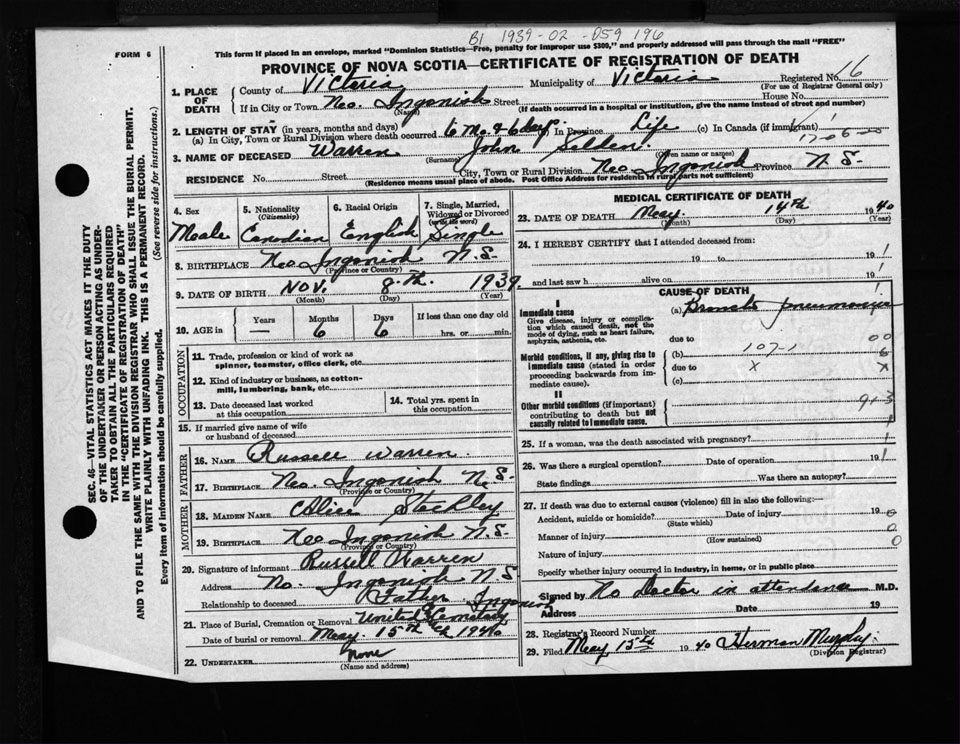 B1 1939-02-059196
FORM 6
This form if placed in an envelope, marked "Dominion Statistics—Free, penalty for improper use $300," and properly addressed will pass through the mail "FREE"
PROVINCE OF NOVA SCOTIA—CERTIFICATE OF REGISTRATION OF DEATH
SEC. 46—VITAL STATISTICS ACT MAKES IT THE DUTY
OF THE UNDERTAKER OR PERSON ACTING AS UNDER-
TAKER TO OBTAIN ALL THE PARTICULARS REQUIRED
IN THE "CERTIFICATE OF REGISTRATION OF DEATH"
AND TO FILE THE SAME WITH THE DIVISION REGISTRAR WHO SHALL ISSUE THE BURIAL PERMIT.
WRITE PLAINLY WITH UNFADING INK. THIS IS A PERMANENT RECORD.
Every item of information should be carefully supplied. (See reverse side for instructions.)
1. PLACE OF DEATH
County of Victoria Municipality of Victoria Registered No. 16
(For use of Registrar General only)
If in City or Town Neo. Ingonish Street House No.
(Name) (If death occurred in a hospital or institution, give the name instead of street and number)
2. LENGTH OF STAY (in years, months and days)
(a) In City, Town or Rural Division where death occurred 6 Mo. & 6 days. In Province Life (c) In Canada (if immigrant)
3. NAME OF DECEASED Warren John Selden.
(Surname) (Given name or names)
RESIDENCE No. Street City, Town or Rural Division Neo Ingonish Province N S.
(Residence means usual place of abode. Post Office Address for residents in rural parts not sufficient)
4. Sex Meale
5. Nationality (Citizenship) Candian
6. Racial Origin English
7. Single, Married, Widowed or Divorced (write the word) Single
8. BIRTHPLACE Neo Ingonish N.S.
(Province or Country)
9. DATE OF BIRTH Nov. 8-th. 1939.
(Month) (Day) (Year)
10. AGE in Years Months Days If less than one day old
— 6 6 hrs. or min.
OCCUPATION
11. Trade, profession or kind of work as
spinner, teamster, office clerk, etc.
12. Kind of industry or business, as cotton-
mill, lumbering, bank, etc.
13. Date deceased last worked
at this occupation
14. Total yrs. spent in
this occupation
15. If married give name of wife
or husband of deceased
FATHER
16. NAME Russell Warren.
17. BIRTHPLACE Neo. Ingonish N. S.
(Province or Country)
MOTHER
18. MAIDEN NAME Stechley
19. BIRTHPLACE Neo Ingonish N.S.
(Province or Country)
20. Signature of informant Russell Warren
Address No. Ingonish N.S
Relationship to deceased Father
21. Place of Burial, Cremation or Removal
Date of burial or removal Meay. 15th 1940
22. UNDERTAKER None
(Name and address)
MEDICAL CERTIFICATE OF DEATH
23. DATE OF DEATH Meay. 14th 1940
(Month) (Day) (Year)
24. I HEREBY CERTIFY that I attended deceased from:
19 to 19
and last saw h alive on 19
CAUSE OF DEATH
I
Immediate cause
Give disease, injury or complica-
tion which caused death, not the
mode of dying, such as heart failure,
asphyxia, asthenia, etc.
(a) Broncho pneumonia
due to
Morbid conditions, if any, giving rise to
immediate cause (stated in order
proceeding backwards from im-
mediate cause).
(b) 107-1
due to x
(c)
II
Other morbid conditions (if important)
contributing to death but not
causally related to immediate cause.
25. If a woman, was the death associated with pregnancy?
26. Was there a surgical operation? Date of operation 19
State findings Was there an autopsy?
27. If death was due to external causes (violence) fill in also the following:—
Accident, suicide or homicide? Date of injury 19
(State which)
Manner of injury
(How sustained)
Nature of injury
Specify whether injury occurred in industry, in home, or in public place
Signed by No Doctor in attendance M.D.
Address Date 19
28. Registrar's Record Number
29. Filed Meay 15th 1940 Herman Murphy.
(Division Registrar)